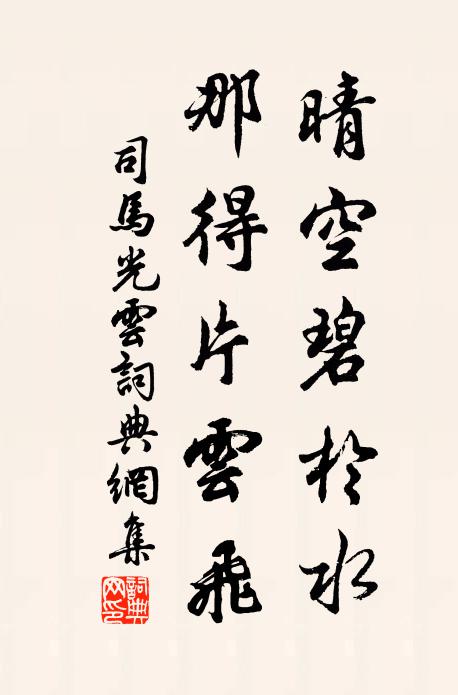 晴空碧於水
那得片雲飛
司馬光雲詞典網集
詞典網印